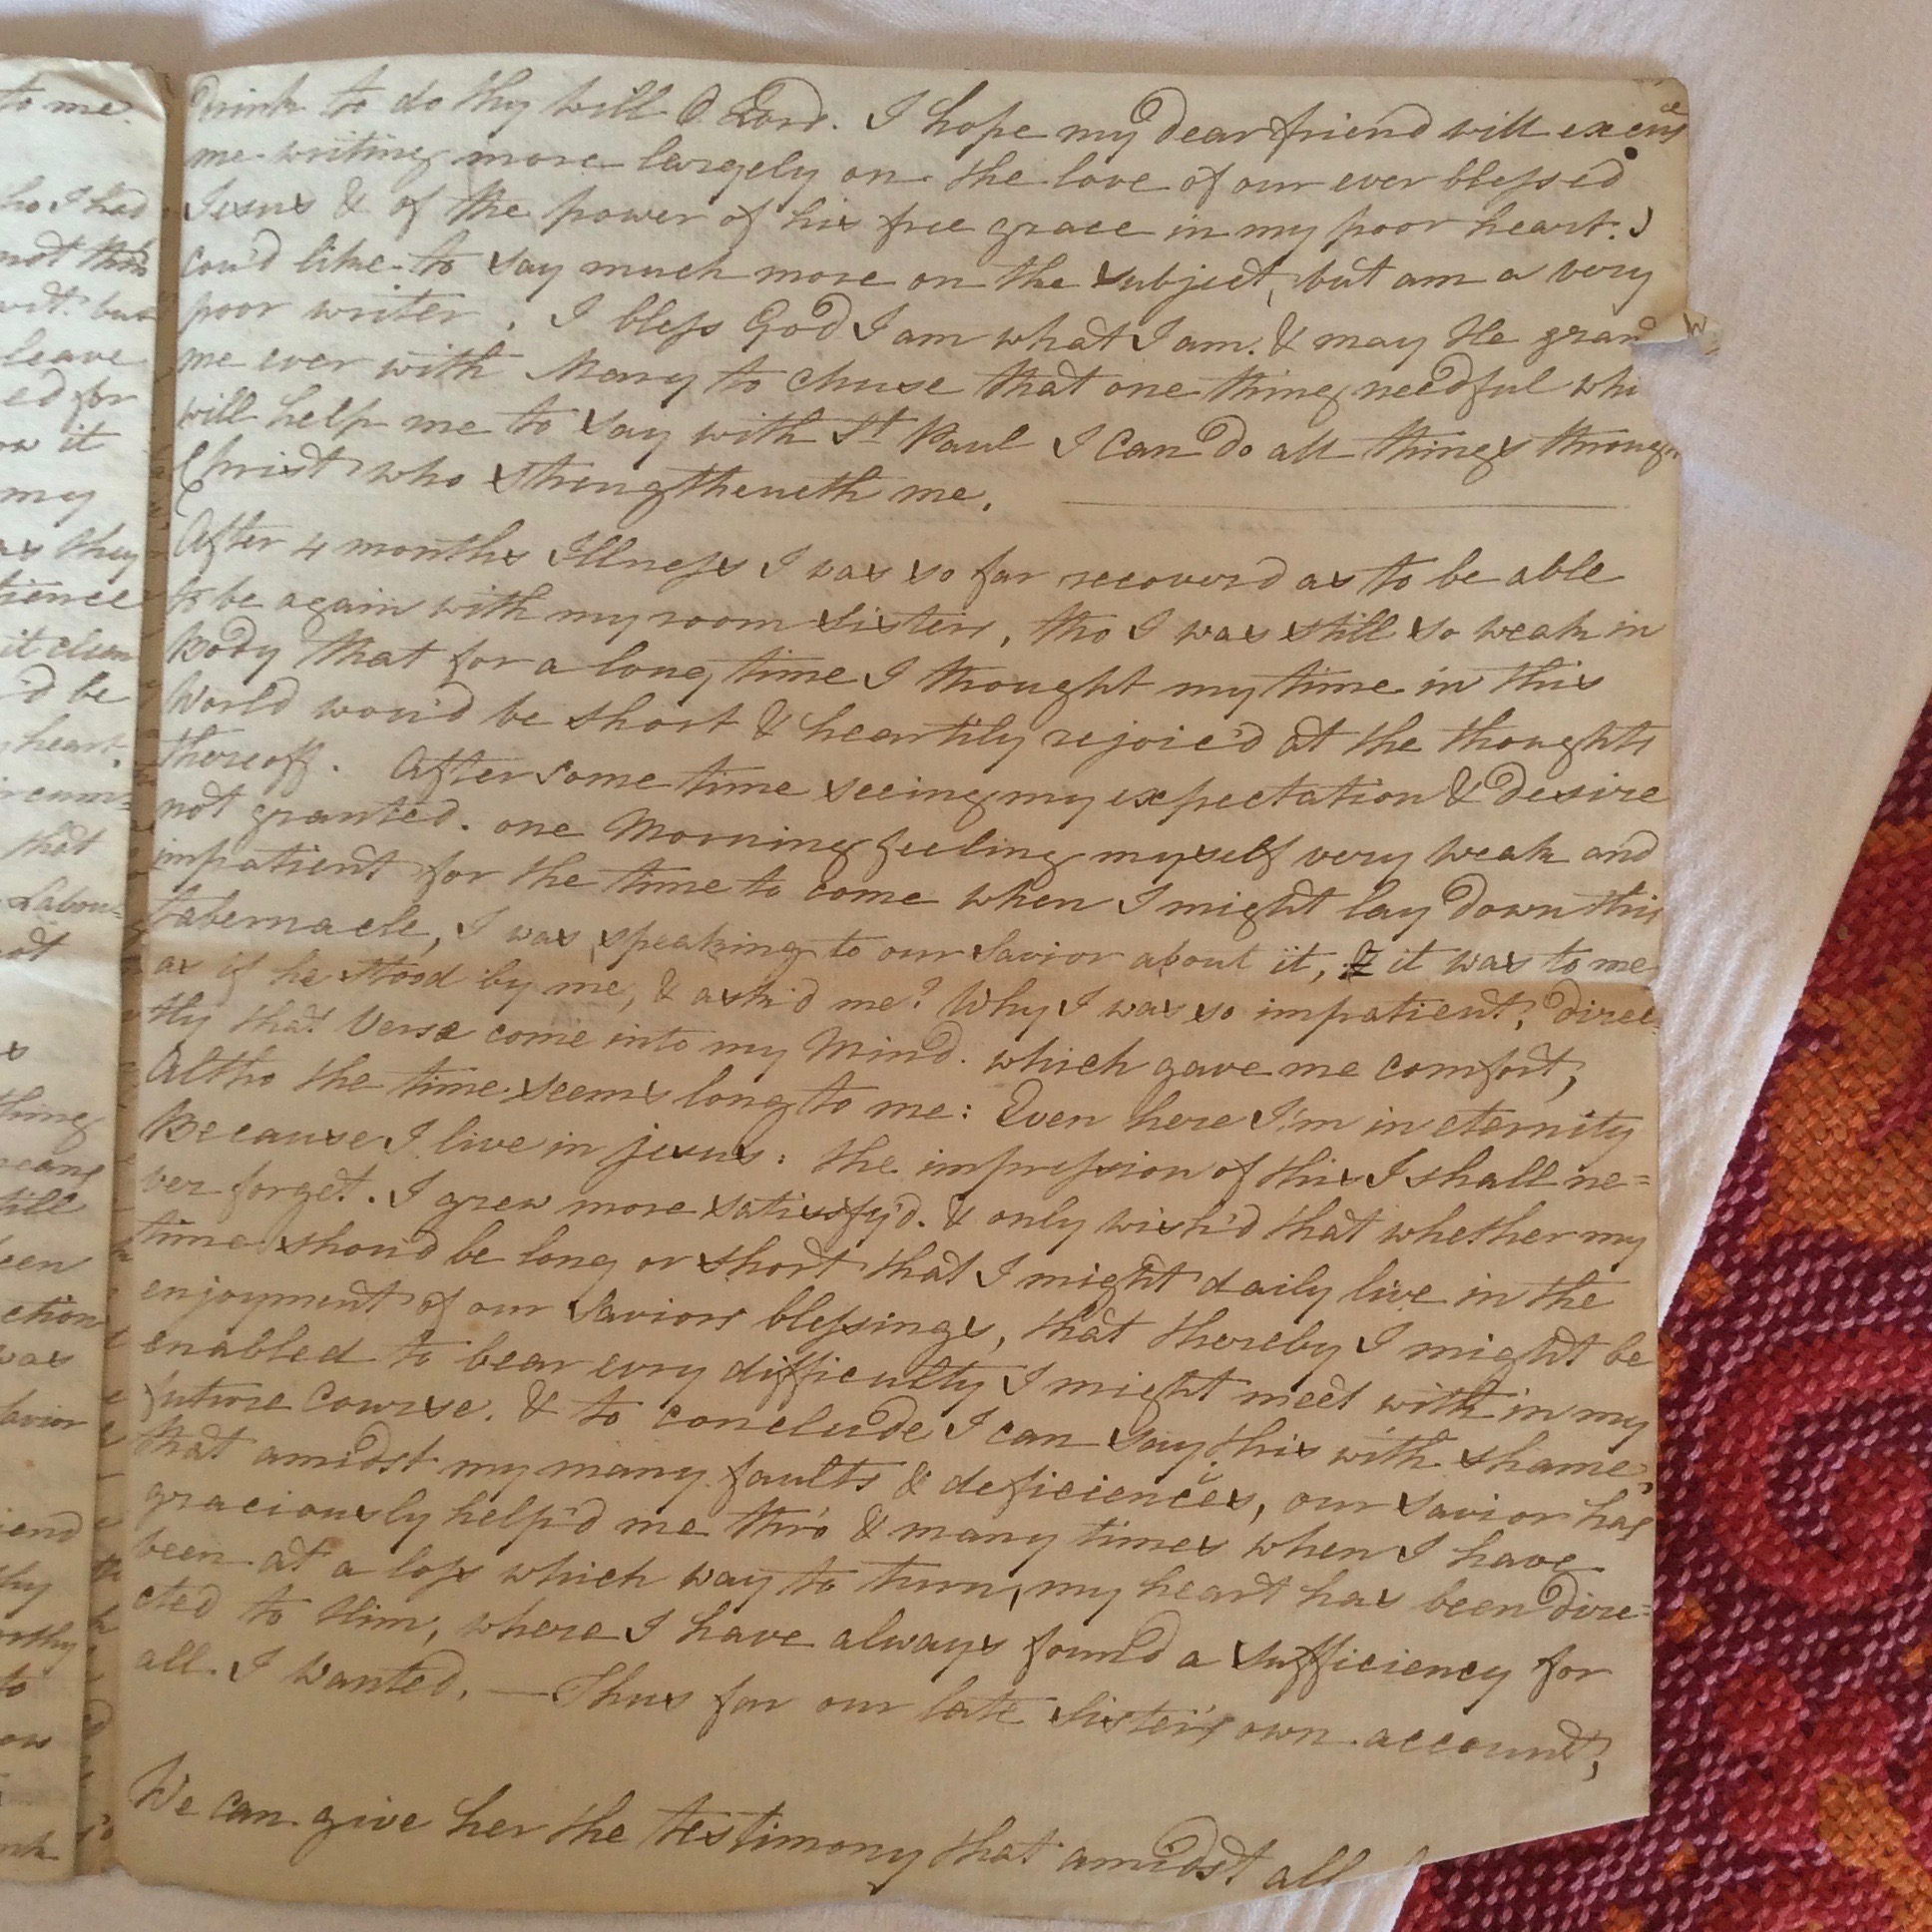 to me.
ho I had
not this
but
leave
ed for
ow it
my
as they
tience
it clean
'd be
heart.
rcum=
that
Labou=
not
s
thing
means
till
een
ction
was
Savior
iend
thy
orthy
to
ow
Drink to do thy will O Lord. I hope my dear friend will excuse
me writing more largely on the love of our ever blessed
Jesus & of the power of his free grace in my poor heart. I
cou'd like to say much more on the subject, but am a very
poor writer. I bless God I am what I am. & may He gran
me ever with Mary to chuse that one thing needful whi
will help me to say with St Paul I can do all things through
Christ who strengtheneth me.
After 4 months Illness I was so far recover'd as to be able
to be again with my room sisters, tho I was still so weak in
Body that for a long time I thought my time in this
World wou'd be short & heartily rejoic'd at the thoughts
thereoff. After some time seeing my expectation & desire
not granted. one Morning feeling myself very weak and
impatient for the time to come when I might lay down this
tabernacle, I was speaking to our Savior about it, & it was to me
as if he stood by me, & ask'd me? Why I was so impatient? direc=
tly that Verse come into my Mind. which gave me comfort,
Altho the time seems long to me: Even here I'm in eternity
Because I live in Jesus: the impression of this I shall ne=
ver forget. I grew more satisfy'd. & only wish'd that whether my
time shou'd be long or short that I might daily live in the
enjoyment of our Saviors blessings, that thereby I might be
enabled to bear evry difficulty I might meet with in my
future Course. & to conclude I can say this with shame,
that amidst my many faults & deficiences, our Savior has
graciously help'd me thro' & many times when I have
been at a loss which way to turn, my heart has been dire=
cted to Him, where I have always found a sufficiency for
all I wanted. — Thus far our late Sister's own account,
We can give her the testimony that amidst all